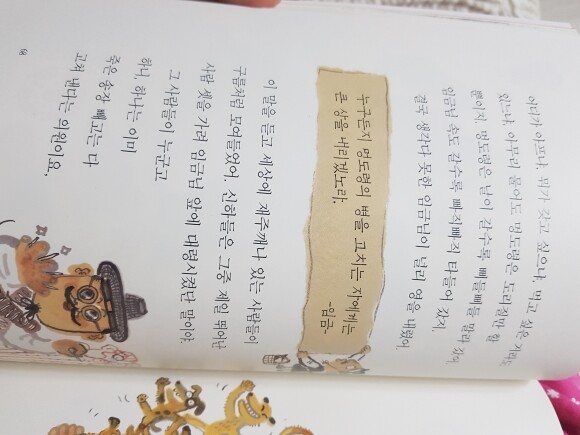 어디가 아프냐, 뭐가 갖고 싶으냐, 먹고 싶은 거라도
있느냐. 아무리 물어도 명도령은 도리질만 할
뿐이지. 명도령은 날이 갈수록 삐들삐들 말라 갔어.
임금님 속도 갈수록 빠직빠직 타들어 갔지.
결국 생각다 못한 임금님이 널리 영을 내렸어.
누구든지 명도령의 병을 고치는 자에게는
큰 상을 내리겠노라.
-임금-
이 말을 듣고 세상에 재주깨나 있는 사람들이
구름처럼 모여들었어. 신하들은 그중 제일 뛰어난
사람 셋을 가려 임금님 앞에 대령시켰단 말이야.
그 사람들이 누군고
하니, 하나는 이미
죽은 송장 빼고는 다
고쳐 낸다는 의원이요.